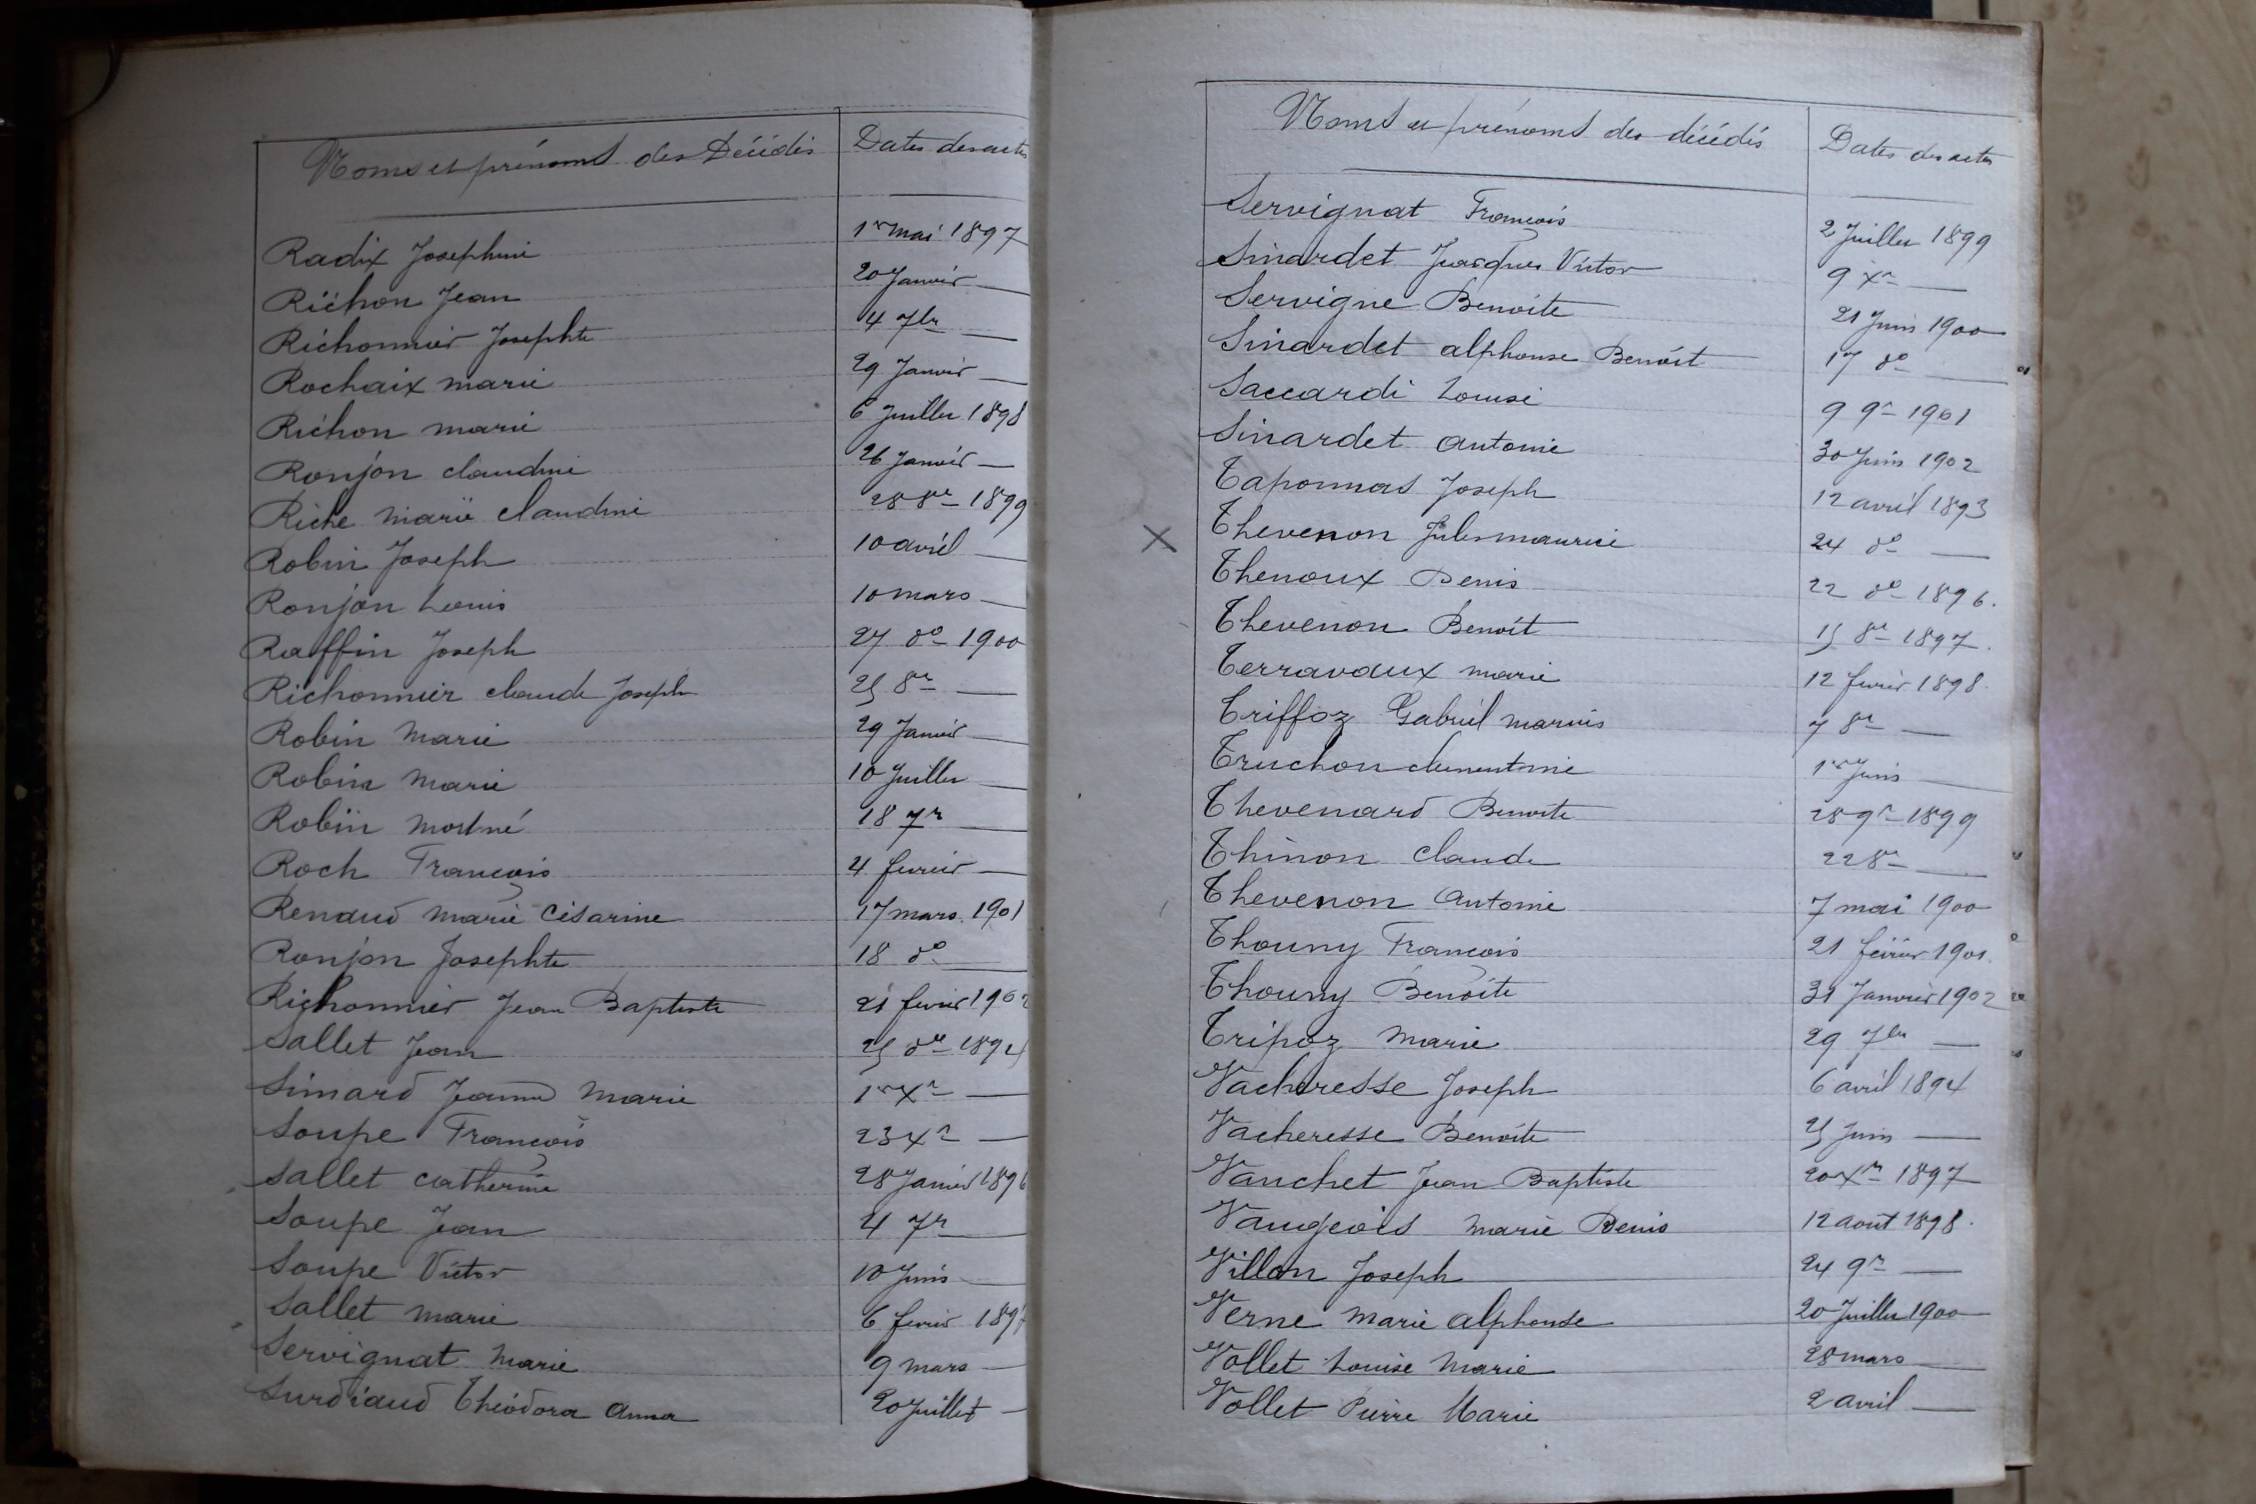 Noms et prénoms des Décédés Dates des actes
Radix Josephine 1er mai 1897
Richon Jean 20 Janvier —
Richonnier Josephte 4 7bre —
Rochaix marie 29 Janvier —
Richon marie 6 Juillet 1898
Ronjon claudine 26 Janvier —
Riche marie claudine 28 8re 1899
Robin Joseph 10 avril —
Ronjon Louis 10 mars —
Raffin Joseph 27 do 1900
Richonnier claude Joseph 25 8re —
Robin Marie 29 Janvier —
Robin Marie 10 Juillet —
Robin mort né 18 7re —
Roch François 4 fevrier —
Renaud Marie Césarine 17 mars 1901
Ronjon Josephte 18 do —
Richonnier Jean Baptiste 21 fevrier 1902
Sallet Jean 25 8re 1894
Simard Jeanne Marie 1er Xre —
Soupe François 23 Xre —
Sallet Catherine 28 Janvier 1896
Soupe Jean 4 7re —
Soupe Victor 10 Juin —
Sallet Marie 6 fevrier 1897
Servignat Marie 9 mars —
Surdiaud Théodora Anna 20 Juillet —
Noms et prénoms des décédés Dates des actes
Servignat François 2 Juillet 1899
Sinardet Jacques Victor 9 Xre —
Servigne Benoîte 21 Juin 1900
Sinardet alphonse Benoit 17 do —
Saccardi Louise 9 9re 1901
Sinardet Antoine 30 Juin 1902
Taponnas Joseph 12 avril 1893
X Thevenon Jules maurice 24 do —
Thenoux Denis 22 do 1896.
Thevenon Benoît 15 8re 1897.
Terravaux marie 12 fevrier 1898.
Triffoz Gabriel marius 7 8re —
Truchon clementine 1er Juin —
Thevenard Benoite 28 9re 1899
Thinon Claude 22 8re —
Thevenon Antoine 7 mai 1900
Thouny François 21 février 1901.
Thouny Benoîte 31 Janvier 1902
Tripoz Marie 29 7bre —
Vacheresse Joseph 6 avril 1894
Vacheresse Benoîte 25 Juin —
Vanchet Jean Baptiste 20 Xre 1897
Vaugeois Marie Denis 12 août 1898.
Villon Joseph 24 9re —
Verne Marie Alphonse 20 Juillet 1900
Vollet Louise Marie 28 mars —
Vollet Pierre Marie 2 avril —